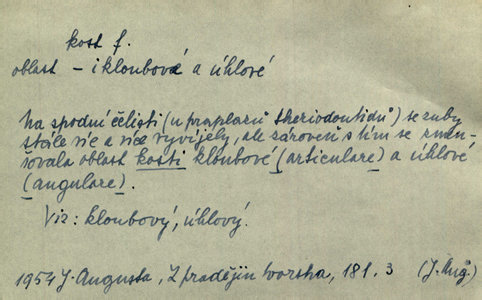 kost f.
oblast – i kloubová a úhlové
Na spodní čelisti (u praplazů theriodontidů) se zuby
stále víc a více vyvíjely, ale zároveň s tím se zmen-
šovala oblast kosti kloubové (articulare) a úhlové
(angulare).
Viz: kloubový, úhlový.
1954 J. Augusta, Z pradějin tvorstva, 181, 3 (J. Aug.)